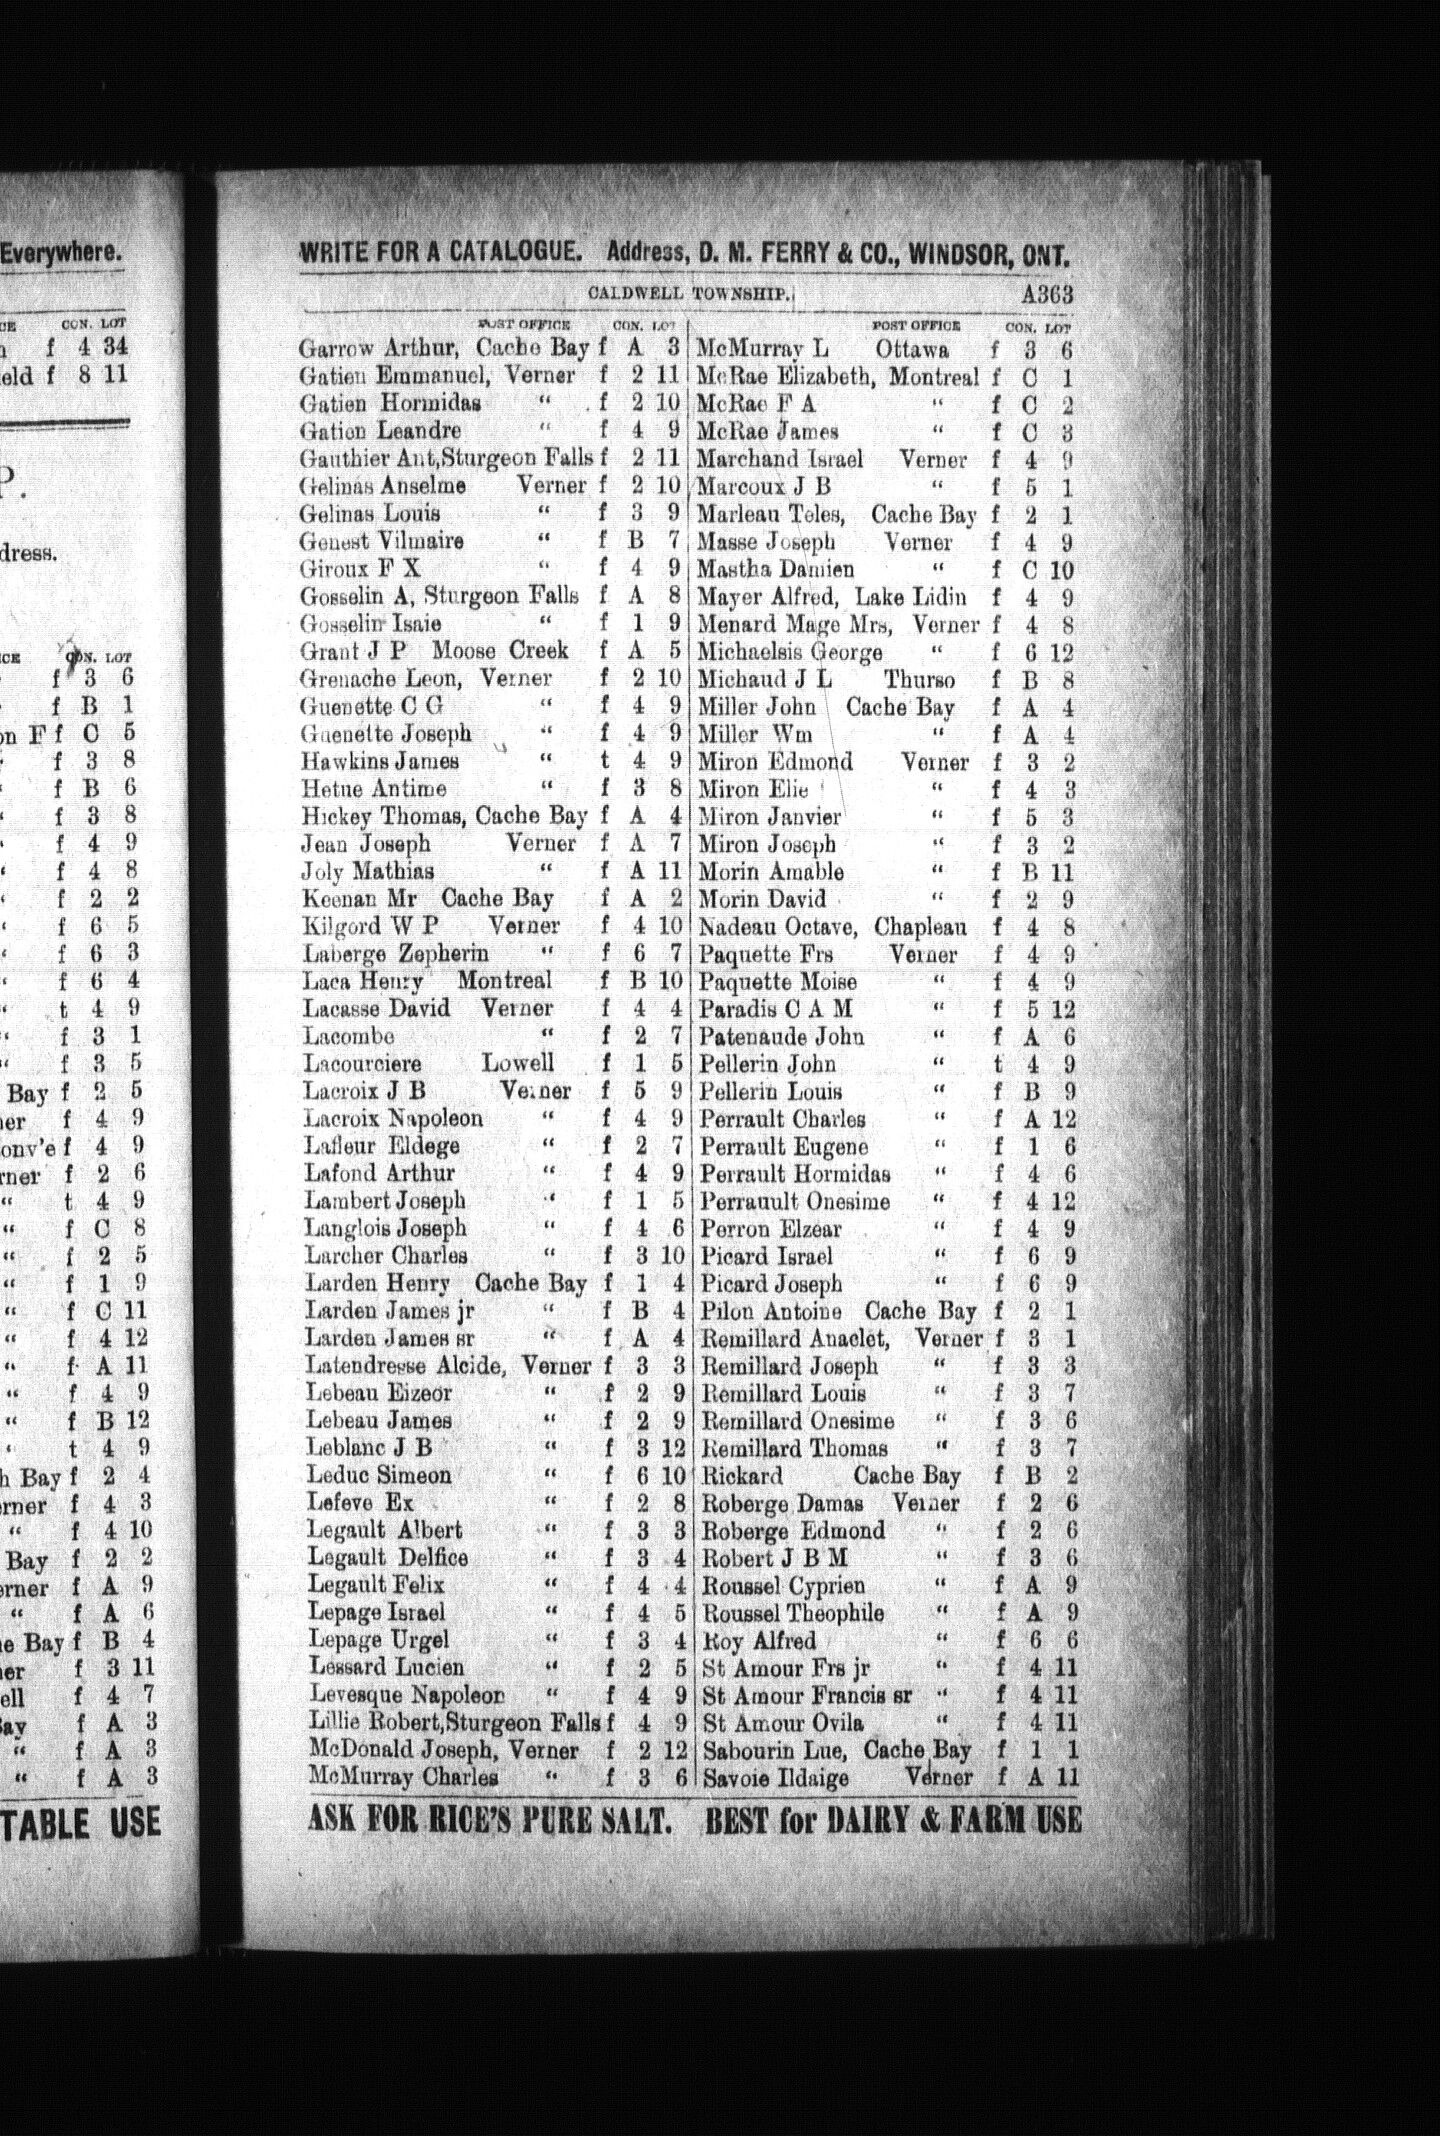 Everywhere.
CON. LOT
f 4 34
eld f 8 11
P.
dress.
CON. LOT
f 3 6
f B 1
on F f C 5
f 3 8
f B 6
f 3 8
f 4 9
f 4 8
f 2 2
f 6 5
f 6 3
f 6 4
t 4 9
“ f 3 1
“ f 3 5
Bay f 2 5
ner f 4 9
onv'e f 4 9
rner f 2 6
“ t 4 9
“ f C 8
“ f 2 5
“ f 1 9
“ f C 11
“ f 4 12
“ f A 11
“ f 4 9
“ f B 12
t 4 9
h Bay f 2 4
erner f 4 3
“ f 4 10
Bay f 2 2
erner f A 9
“ f A 6
ne Bay f B 4
ner f 3 11
ell f 4 7
Bay f A 3
“ f A 3
“ f A 3
TABLE USE
WRITE FOR A CATALOGUE. Address, D. M. FERRY & CO., WINDSOR, ONT.
CALDWELL TOWNSHIP. A363
POST OFFICE CON. LOT
Garrow Arthur, Cache Bay f A 3
Gatien Emmanuel, Verner f 2 11
Gatien Hormidas “ f 2 10
Gatien Leandre “ f 4 9
Gauthier Ant,Sturgeon Falls f 2 11
Gelinas Anselme Verner f 2 10
Gelinas Louis “ f 3 9
Genest Vilmaire “ f B 7
Giroux F X “ f 4 9
Gosselin A, Sturgeon Falls f A 8
Gosselin Isaie “ f 1 9
Grant J P Moose Creek f A 5
Grenache Leon, Verner f 2 10
Guenette C G “ f 4 9
Guenette Joseph “ f 4 9
Hawkins James “ t 4 9
Hetue Antime “ f 3 8
Hickey Thomas, Cache Bay f A 4
Jean Joseph Verner f A 7
Joly Mathias “ f A 11
Keenan Mr Cache Bay f A 2
Kilgord W P Verner f 4 10
Laberge Zepherin “ f 6 7
Laca Henry Montreal f B 10
Lacasse David Verner f 4 4
Lacombe “ f 2 7
Lacourciere Lowell f 1 5
Lacroix J B Verner f 5 9
Lacroix Napoleon “ f 4 9
Lafleur Eldege “ f 2 7
Lafond Arthur “ f 4 9
Lambert Joseph “ f 1 5
Langlois Joseph “ f 4 6
Larcher Charles “ f 3 10
Larden Henry Cache Bay f 1 4
Larden James jr “ f B 4
Larden James sr “ f A 4
Latendresse Alcide, Verner f 3 3
Lebeau Eizeor “ f 2 9
Lebeau James “ f 2 9
Leblanc J B “ f 3 12
Leduc Simeon “ f 6 10
Lefeve Ex “ f 2 8
Legault Albert “ f 3 3
Legault Delfice “ f 3 4
Legault Felix “ f 4 4
Lepage Israel “ f 4 5
Lepage Urgel “ f 3 4
Lessard Lucien “ f 2 5
Levesque Napoleon “ f 4 9
Lillie Robert,Sturgeon Falls f 4 9
McDonald Joseph, Verner f 2 12
McMurray Charles “ f 3 6
POST OFFICE CON. LOT
McMurray L Ottawa f 3 6
McRae Elizabeth, Montreal f C 1
McRae F A “ f C 2
McRae James “ f C 3
Marchand Israel Verner f 4 9
Marcoux J B “ f 5 1
Marleau Teles, Cache Bay f 2 1
Masse Joseph Verner f 4 9
Mastha Damien “ f C 10
Mayer Alfred, Lake Lidin f 4 9
Menard Mage Mrs, Verner f 4 8
Michaelsis George “ f 6 12
Michaud J L Thurso f B 8
Miller John Cache Bay f A 4
Miller Wm “ f A 4
Miron Edmond Verner f 3 2
Miron Elie “ f 4 3
Miron Janvier “ f 5 3
Miron Joseph “ f 3 2
Morin Amable “ f B 11
Morin David “ f 2 9
Nadeau Octave, Chapleau f 4 8
Paquette Frs Verner f 4 9
Paquette Moise “ f 4 9
Paradis C A M “ f 5 12
Patenaude John “ f A 6
Pellerin John “ t 4 9
Pellerin Louis “ f B 9
Perrault Charles “ f A 12
Perrault Eugene “ f 1 6
Perrault Hormidas “ f 4 6
Perrauult Onesime “ f 4 12
Perron Elzear “ f 4 9
Picard Israel “ f 6 9
Picard Joseph “ f 6 9
Pilon Antoine Cache Bay f 2 1
Remillard Anaclet, Verner f 3 1
Remillard Joseph “ f 3 3
Remillard Louis “ f 3 7
Remillard Onesime “ f 3 6
Remillard Thomas “ f 3 7
Rickard Cache Bay f B 2
Roberge Damas Verner f 2 6
Roberge Edmond “ f 2 6
Robert J B M “ f 3 6
Roussel Cyprien “ f A 9
Roussel Theophile “ f A 9
Roy Alfred “ f 6 6
St Amour Frs jr “ f 4 11
St Amour Francis sr “ f 4 11
St Amour Ovila “ f 4 11
Sabourin Lue, Cache Bay f 1 1
Savoie Ildaige Verner f A 11
ASK FOR RICE'S PURE SALT. BEST for DAIRY & FARM USE